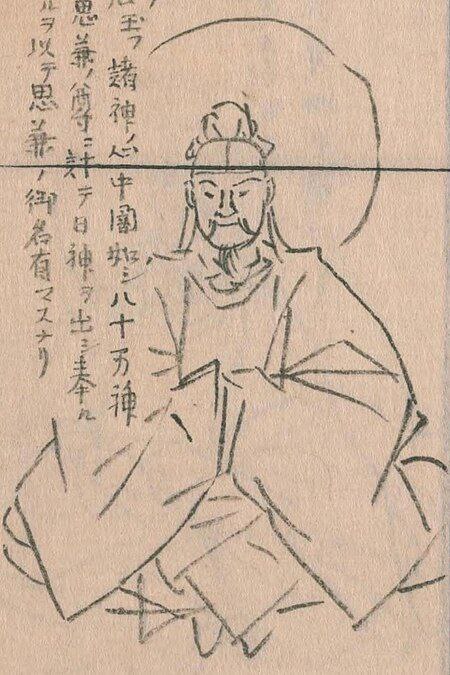 玉フ諸神ノ心中闇如シ八十万神
思兼ノ尊ニ計テ日神ヲ出シ奉ル
ヲ以テ思兼ノ御名有マスナリ